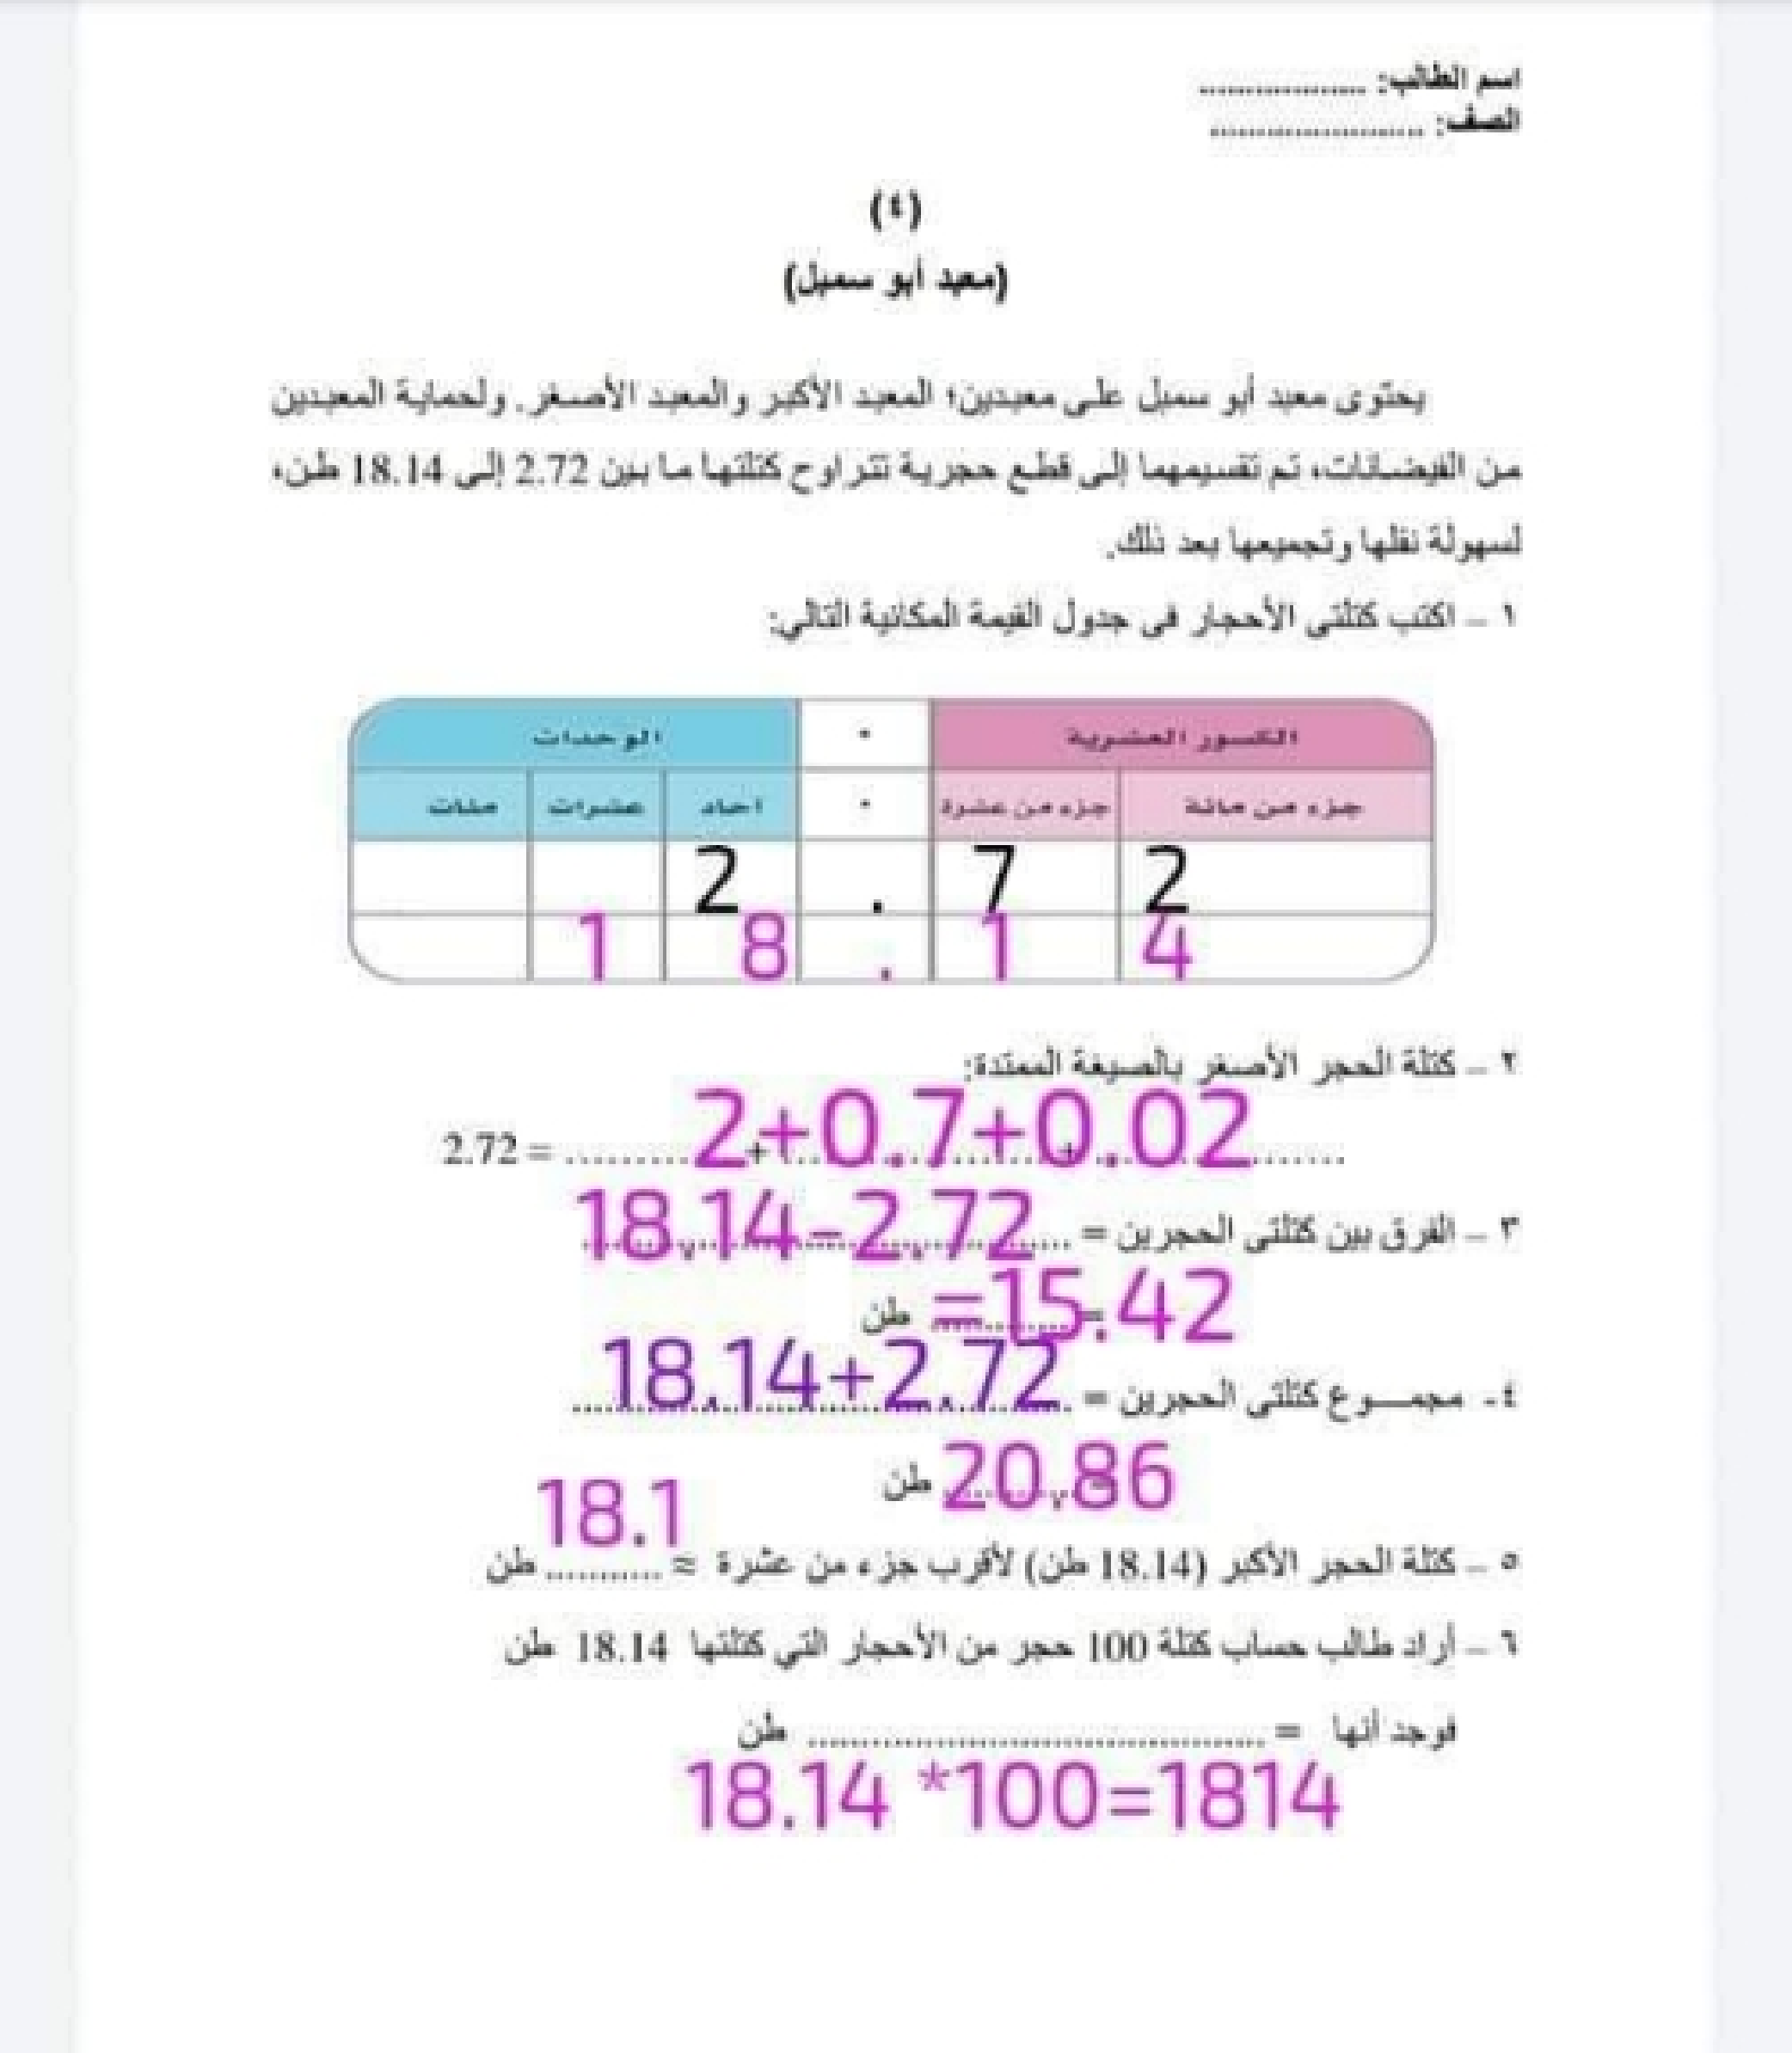 اسم الطالب: ..................
الصف: ......................
(٤)
(معبد أبو سمبل)
يحتوى معبد أبو سمبل على معبدين؛ المعبد الأكبر والمعبد الأصغر. ولحماية المعبدين
من الفيضانات، تم تقسيمهما إلى قطع حجرية تتراوح كتلتها ما بين 2.72 إلى 18.14 طن،
لسهولة نقلها وتجميعها بعد ذلك.
١ – اكتب كتلتى الأحجار فى جدول القيمة المكانية التالي:
الوحدات . الكسور العشرية
مئات عشرات احاد . جزء من عشرة جزء من مائة
2 . 7 2
1 8 . 1 4
٢ – كتلة الحجر الأصغر بالصيغة الممتدة:
2.72 = 2+0.7+0.02
٣ – الفرق بين كتلتى الحجرين = 18.14-2.72
=15.42 طن
٤- مجمـــوع كتلتى الحجرين = 18.14+2.72
20.86 طن
٥ – كتلة الحجر الأكبر (18.14 طن) لأقرب جزء من عشرة ≈ 18.1 طن
٦ – أراد طالب حساب كتلة 100 حجر من الأحجار التي كتلتها 18.14 طن
فوجد أنها = .......................................... طن
18.14 *100=1814